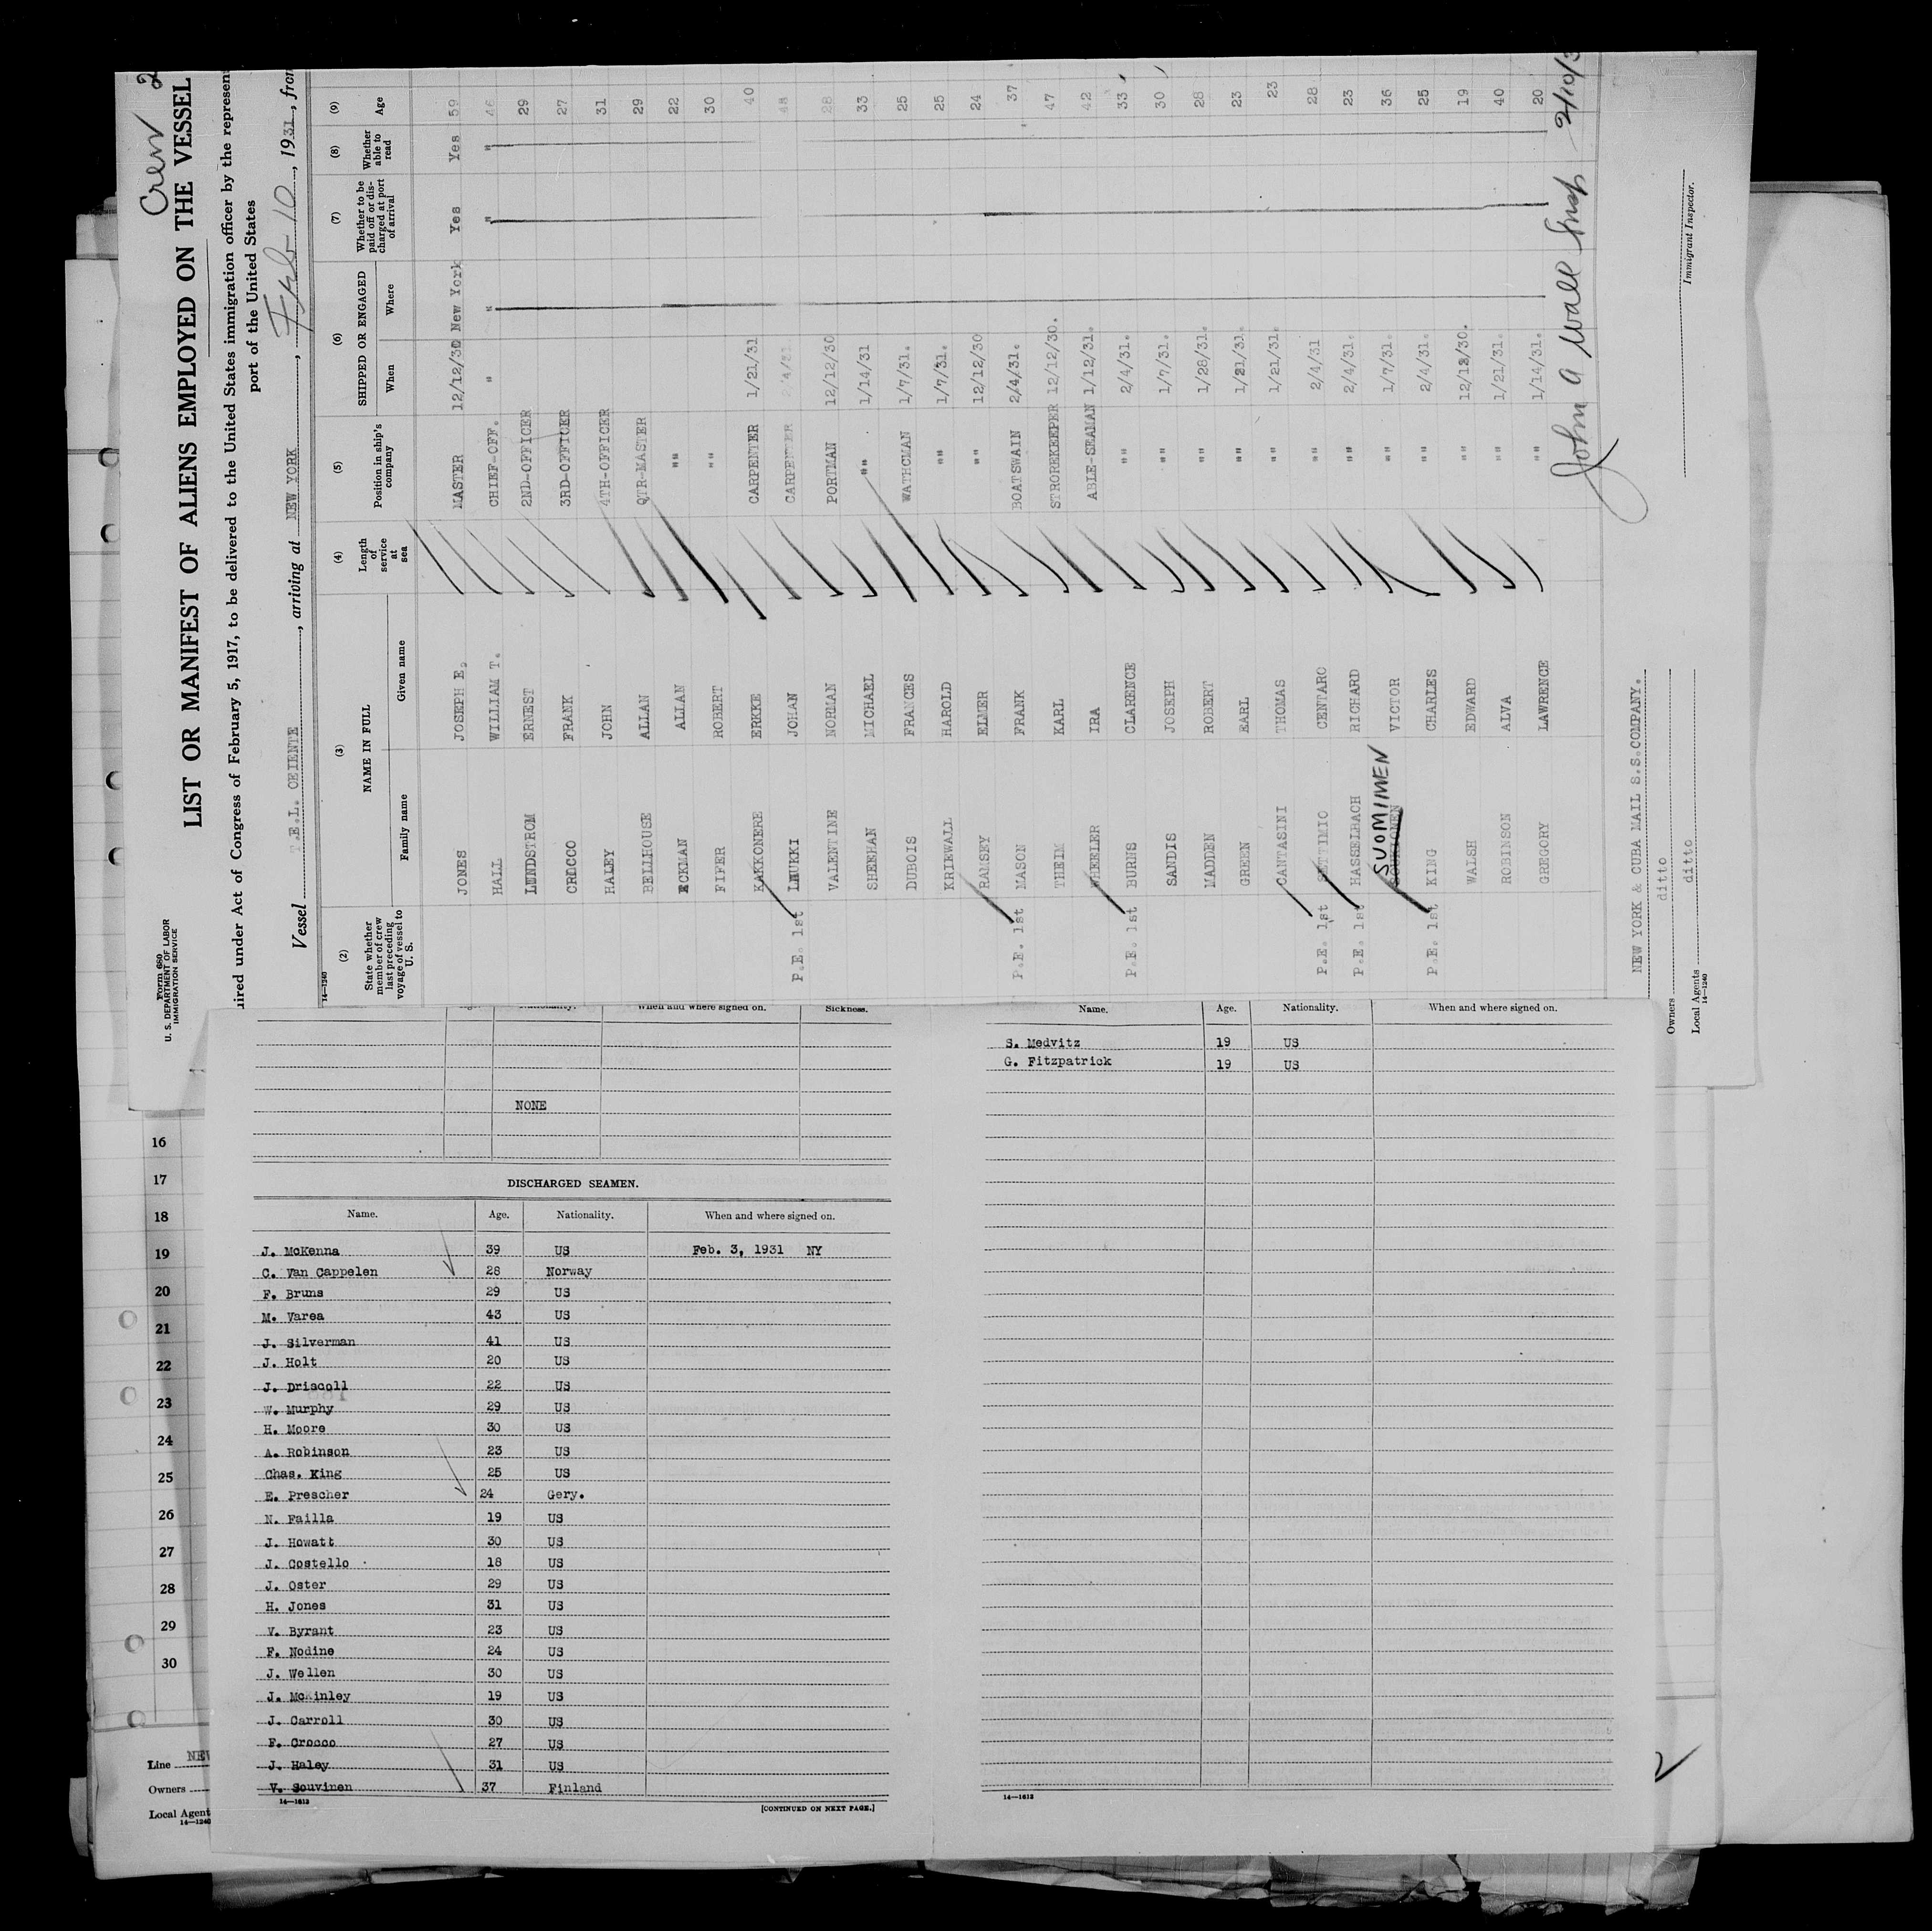 Crew 2
Form 680
U. S. DEPARTMENT OF LABOR
IMMIGRATION SERVICE
LIST OR MANIFEST OF ALIENS EMPLOYED ON THE VESSEL
uired under Act of Congress of February 5, 1917, to be delivered to the United States immigration officer by the represen
port of the United States
Vessel T.E.L. ORIENTE, arriving at NEW YORK, Feb 10, 1931, from
14—1240
(2) (3) (4) (5) (6) (7) (8) (9)
State whether member of crew last preceding voyage of vessel to U. S. NAME IN FULL Length of service at sea Position in ship's company SHIPPED OR ENGAGED Whether to be paid off or discharged at port of arrival Whether able to read Age
Family name Given name When Where
JONES JOSEPH E. MASTER 12/12/30 New York Yes Yes 59
HALL WILLIAM T. CHIEF-OFF. " " " " 46
LUNDSTROM ERNEST 2ND-OFFICER 29
CROCCO FRANK 3RD-OFFICER 27
HALEY JOHN 4TH-OFFICER 31
BELLHOUSE ALLAN QTR-MASTER 29
ECKMAN ALLAN "" 22
FIFER ROBERT "" 30
KAKKONERE ERKKE CARPENTER 1/21/31 40
P.E. 1st LAUKKI JOHAN CARPENTER 2/4/31 48
VALENTINE NORMAN PORTMAN 12/12/30 28
SHEEHAN MICHAEL "" 1/14/31 33
DUBOIS FRANCES WATHCMAN 1/7/31. 25
KRIEWALL HAROLD "" 1/7/31. 25
RAMSEY ELMER "" 12/12/30 24
P.E. 1st MASON FRANK BOATSWAIN 2/4/31. 37
THEIM KARL STROREKEEPER 12/12/30. 47
WHEELER IRA ABLE-SEAMAN 1/12/31. 42
P.E. 1st BURNS CLARENCE "" 2/4/31. 33
SANDIS JOSEPH "" 1/7/31. 30
MADDEN ROBERT "" 1/28/31. 28
GREEN EARL "" 1/21/31. 23
CANTASINI THOMAS "" 1/21/31. 23
P.E. 1st SETTIMIO CENTARO "" 2/4/31 28
P.E. 1st HASSELBACH RICHARD "" 2/4/31. 23
SUOMINEN VICTOR "" 1/7/31. 36
P.E. 1st KING CHARLES "" 2/4/31. 25
WALSH EDWARD "" 12/12/30. 19
ROBINSON ALVA "" 1/21/31. 40
GREGORY LAWRENCE "" 1/14/31. 20
John A Wall Insp 2/10/3
NEW YORK & CUBA MAIL S.S.COMPANY.
Owners ditto
Local Agents ditto
14—1240
Immigrant Inspector.
Nationality. When and where signed on. Sickness.
NONE
DISCHARGED SEAMEN.
Name. Age. Nationality. When and where signed on.
J. McKenna 39 US Feb. 3, 1931 NY
C. Van Cappelen 28 Norway
F. Bruns 29 US
M. Varea 43 US
J. Silverman 41 US
J. Holt 20 US
J. Driscoll 22 US
W. Murphy 29 US
H. Moore 30 US
A. Robinson 23 US
Chas. King 25 US
E. Prescher 24 Gery.
N. Failla 19 US
J. Howatt 30 US
J. Costello 18 US
J. Oster 29 US
H. Jones 31 US
V. Byrant 23 US
F. Nodine 24 US
J. Wellen 30 US
J. McKinley 19 US
J. Carroll 30 US
F. Crocco 27 US
J. Haley 31 US
V. Souvinen 37 Finland
14—1613
[CONTINUED ON NEXT PAGE.]
Name. Age. Nationality. When and where signed on.
S. Medvitz 19 US
G. Fitzpatrick 19 US
14—1613
16
17
18
19
20
21
22
23
24
25
26
27
28
29
30
Line NEW
Owners
Local Agent
14—1240